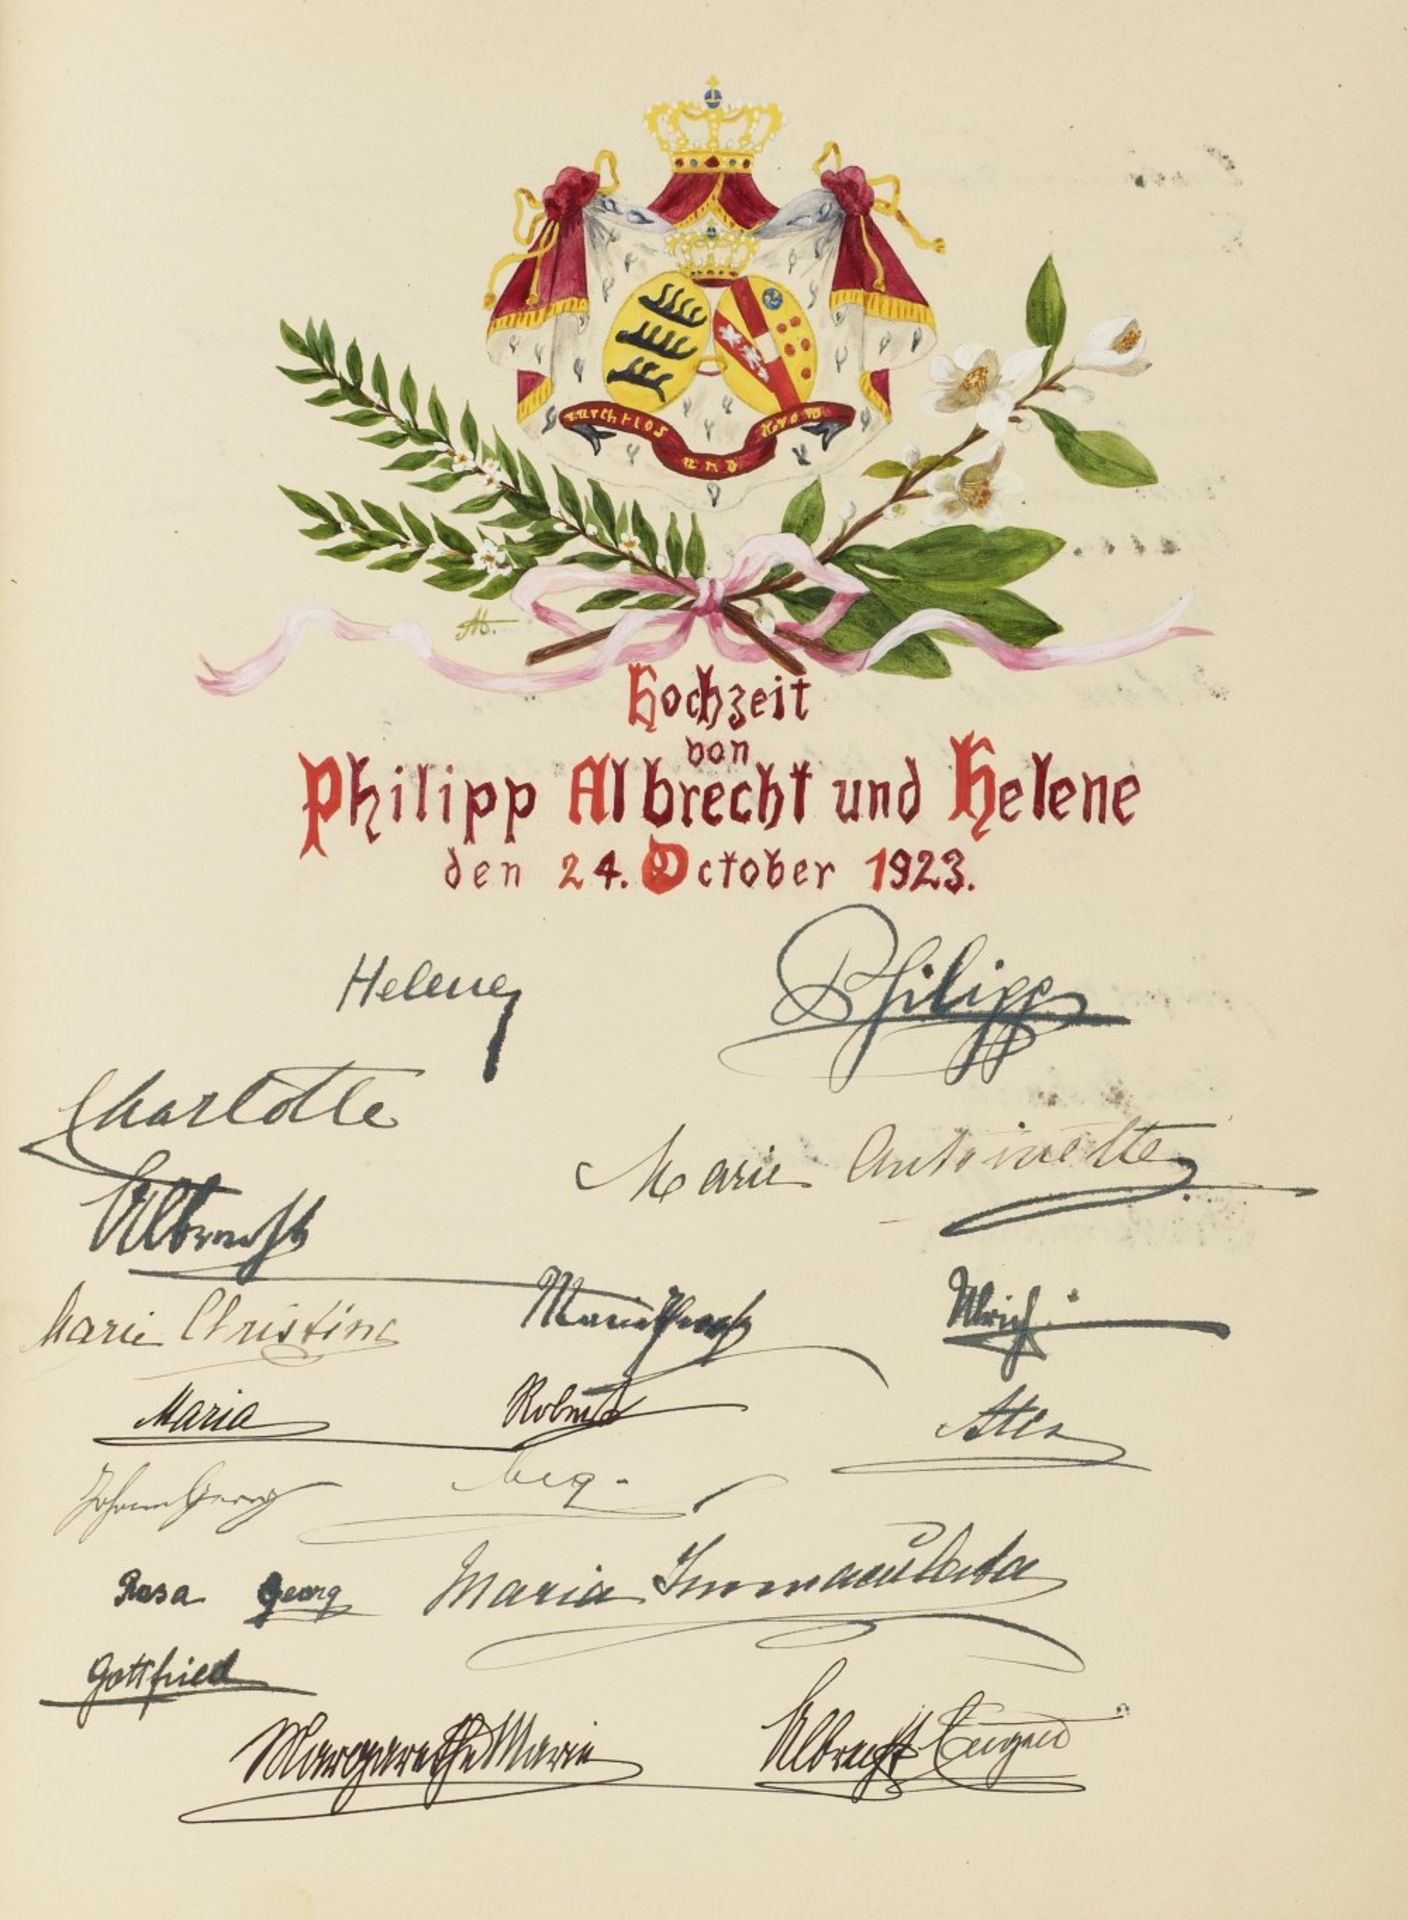 furchtlos und treu
Hochzeit
von
Philipp Albrecht und Helene
den 24. October 1923.
Helene Philipp
Charlotte
Marie Antoinette
Albrecht
Marie Christine Ulrich
Maria Robert
Johann Georg
Rosa Georg Maria Immaculata
Gottfried
Margarethe Marie Albrecht Eugen